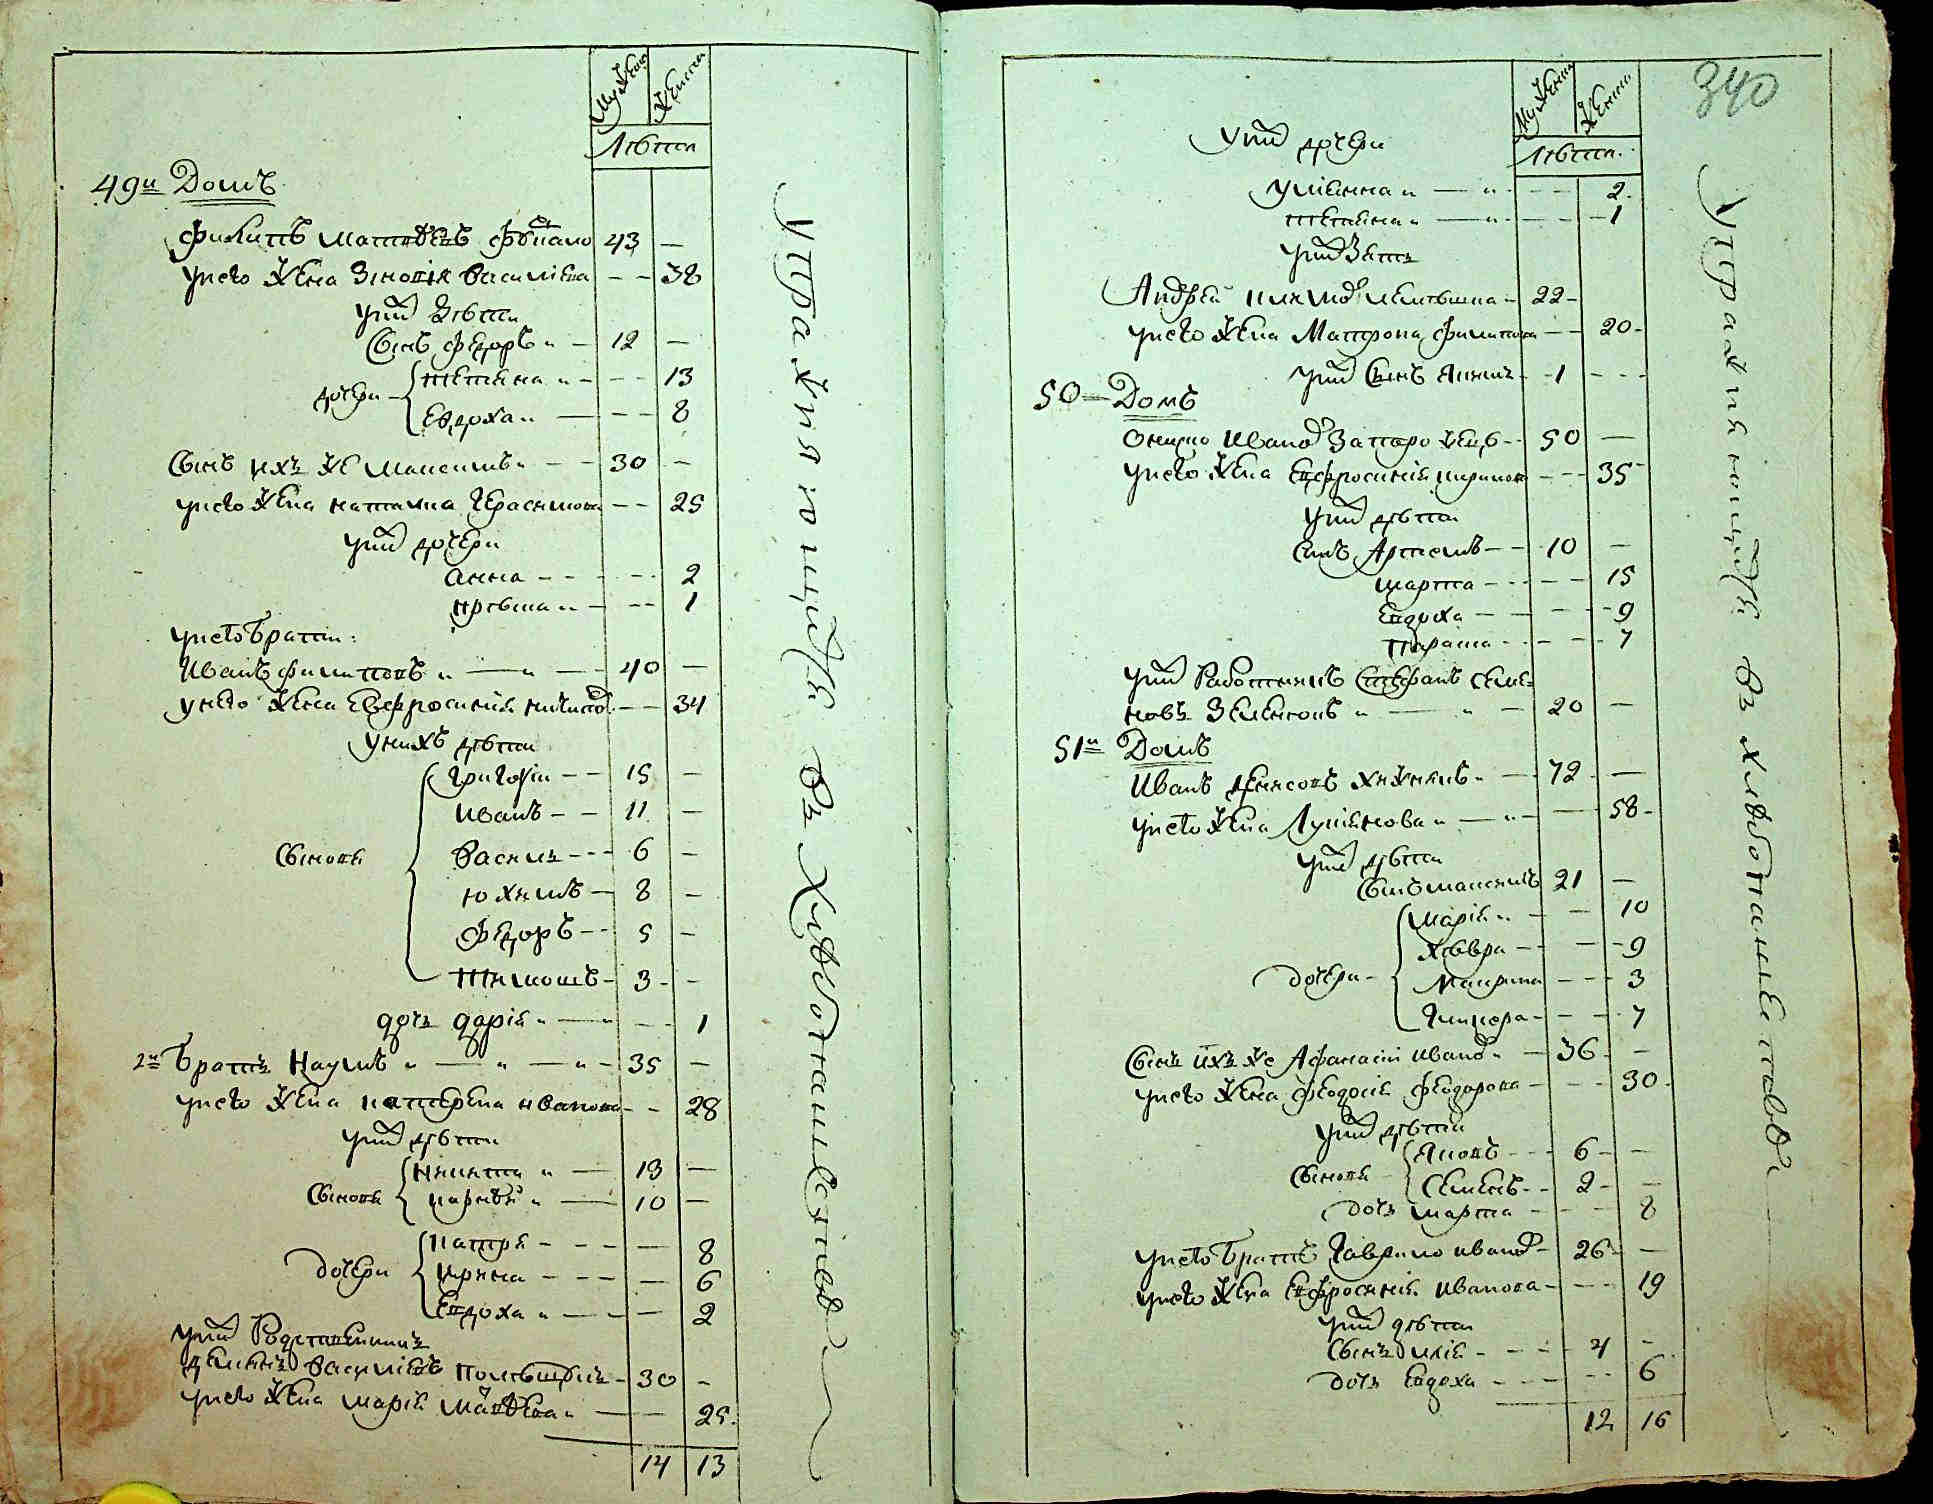 Мужеска
Женска
Лѣта
49й Домъ
Филипъ Матвѣевъ 43 —
Унего жена Зиновія Василіева — — 38
Униⷯ Дѣти
Сынъ Федоръ — 12 —
дочери
Тетяна — — 13
Евдоха — — 8
Сынъ ихъ же Максимъ — 30 —
Унего жена Наталка Герасимова — — 25
Униⷯ дочери
Анна — — 2
Ирѣна — — 1
Унего братъ:
Иванъ Филиповъ — 40 —
Унего жена Евфросинія — — 34
Унихъ дѣти
Сыновя
Григорій — 15 —
Иванъ — 11 —
Василь — 6 —
Юхимъ — 8 —
Федоръ — 5 —
Тимошъ — 3 —
дочь Дарія — 1
2й Братъ Наумъ — 35 —
Унего жена Катерина Иванова — — 28
Униⷯ дѣти
Сыновя
Никита — 13 —
Карнѣй — 10 —
Дочери
Патря — — 8
Ирина — — 6
Евдоха — — 2
Униⷯ Родственникъ
Василіевъ — 30 —
Унего жена Марія — — 25
14 13
Упражняющійся въ хлѣбопашествѣ
340
Мужеска
Женска
Лѣта
Униⷯ дочери
Уліянна — — 2
Тетяна — — 1
Униⷯ Зять
Андрей — 22 —
Унего жена Матрона Филипова — — 20
Униⷯ Сынъ Якимъ — 1 —
50 — Домъ
Онипко Иваноⷡ Запорожецъ — 50 —
Унего жена Евфросинія Кирилова — — 35
Униⷯ дѣти
Сынъ Артемъ — 10 —
Марта — — 15
Евдоха — — 9
Параска — — 7
Униⷯ Работникъ Стефанъ Семе-
новъ Зеленскій — 20 —
51й Домъ
Иванъ Денисовъ Хижнякъ — 72 —
Унего жена Лукіянова — — 58
Униⷯ дѣти
Сынъ Максимъ 21 —
Дочери
Марія — — 10
Хѣвра — — 9
Макрина — — 3
Гликера — — 7
Сынъ ихъ же Афанасій Иваноⷡ — 36 —
Унего жена Феодосія Феодорова — — 30
Униⷯ дѣти
Сыновя
Яковъ — 6 —
Семенъ — 2 —
Дочь Марта — — 8
Унего братъ Гаврило Иваноⷡ — 26 —
Унего жена Евфросинія Иванова — — 19
Униⷯ дѣти
Сынъ Илія — 4 —
Дочь Евдоха — — 6
12 16
Упражняющійся въ хлѣбопашествѣ